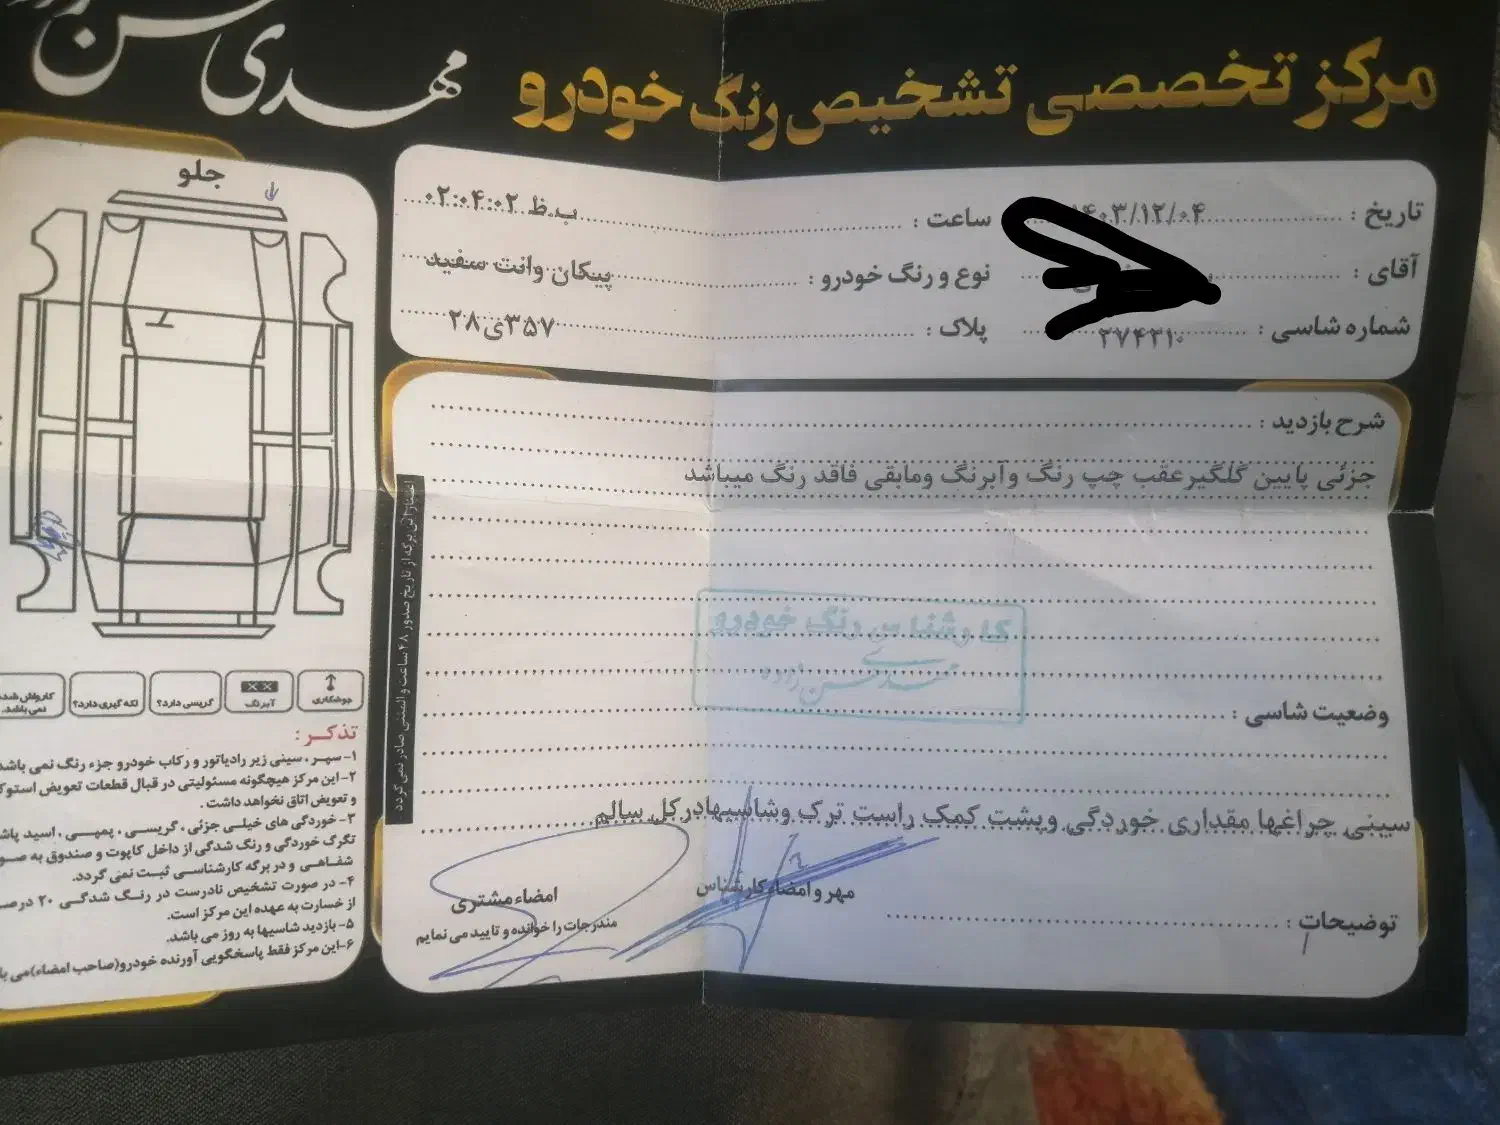 مرکز تخصصی تشخیص رنگ خودرو
مهدی
تاریخ : ۱۴۰۳/۱۲/۰۴
ساعت : ۰۲:۰۴:۰۲ ب.ظ
آقای :
نوع و رنگ خودرو : پیکان وانت سفید
شماره شاسی :
پلاک : ۳۵۷ی۲۸
شرح بازدید :
جزئی پایین گلگیرعقب چپ رنگ وآبرنگ ومابقی فاقد رنگ میباشد
کارشناس رنگ خودرو
وضعیت شاسی :
سینی چراغها مقداری خوردگی وپشت کمک راست ترک وشاسیهادرکل سالم
مهر و امضاء کارشناس
امضاء مشتری
مندرجات را خوانده و تایید می نمایم
توضیحات :
اعتبار این برگه از تاریخ صدور ۴۸ ساعت و المثنی صادر نمی گردد
جلو
جوشکاری
آبرنگ
گریسی دارد؟
لکه گیری دارد؟
کارواش شده نمی باشد.
تذکر :
۱- سپر ، سینی زیر رادیاتور و رکاب خودرو جزء رنگ نمی باشد
۲- این مرکز هیچگونه مسئولیتی در قبال قطعات تعویض استوک
و تعویض اتاق نخواهد داشت .
۳- خوردگی های خیلی جزئی ، گریسی ، پمپی ، اسید پاش
تگرگ خوردگی و رنگ شدگی از داخل کاپوت و صندوق به صو
شفاهی و در برگه کارشناسی ثبت نمی گردد.
۴- در صورت تشخیص نادرست در رنگ شدگی ۲۰ درصد
از خسارت به عهده این مرکز است.
۵- بازدید شاسیها به روز می باشد.
۶- این مرکز فقط پاسخگویی آورنده خودرو(صاحب امضاء)می با